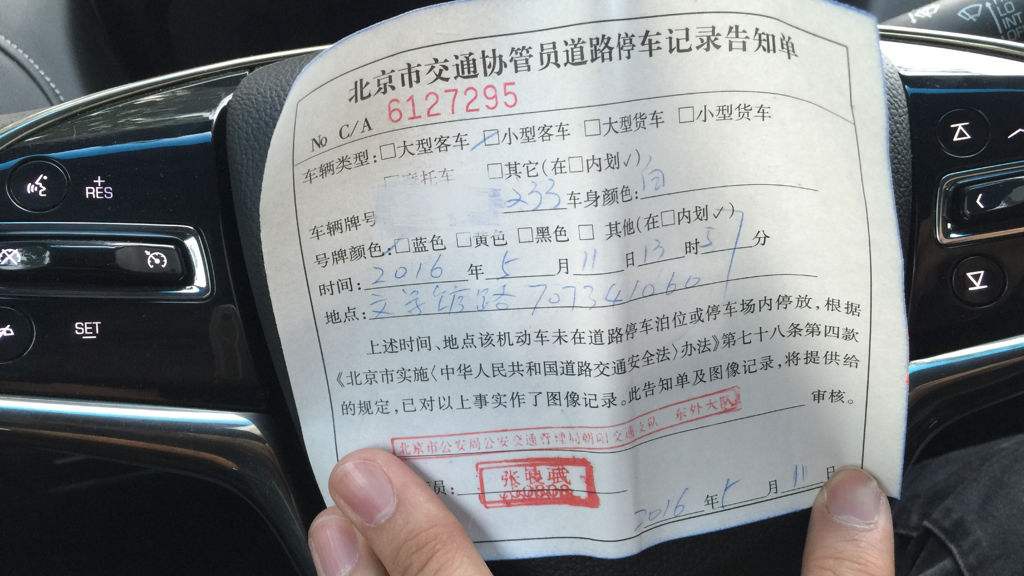 北京市交通协管员道路停车记录告知单
No C/A 6127295
车辆类型:□大型客车 ☑小型客车 □大型货车 □小型货车
□其它(在□内划√)
车辆牌号 233 车身颜色:白
号牌颜色:□蓝色 □黄色 □黑色 □ 其他(在□内划√)
时间:2016年5月11日13时5分
地点:文学馆路 707341060
上述时间、地点该机动车未在道路停车泊位或停车场内停放，根据
《北京市实施〈中华人民共和国道路交通安全法〉办法》第七十八条第四款
的规定，已对以上事实作了图像记录。此告知单及图像记录，将提供给
北京市公安局公安交通管理局朝阳交通支队 东外大队 审核。
员:
2016年5月11日
RES
SET
LO
INT